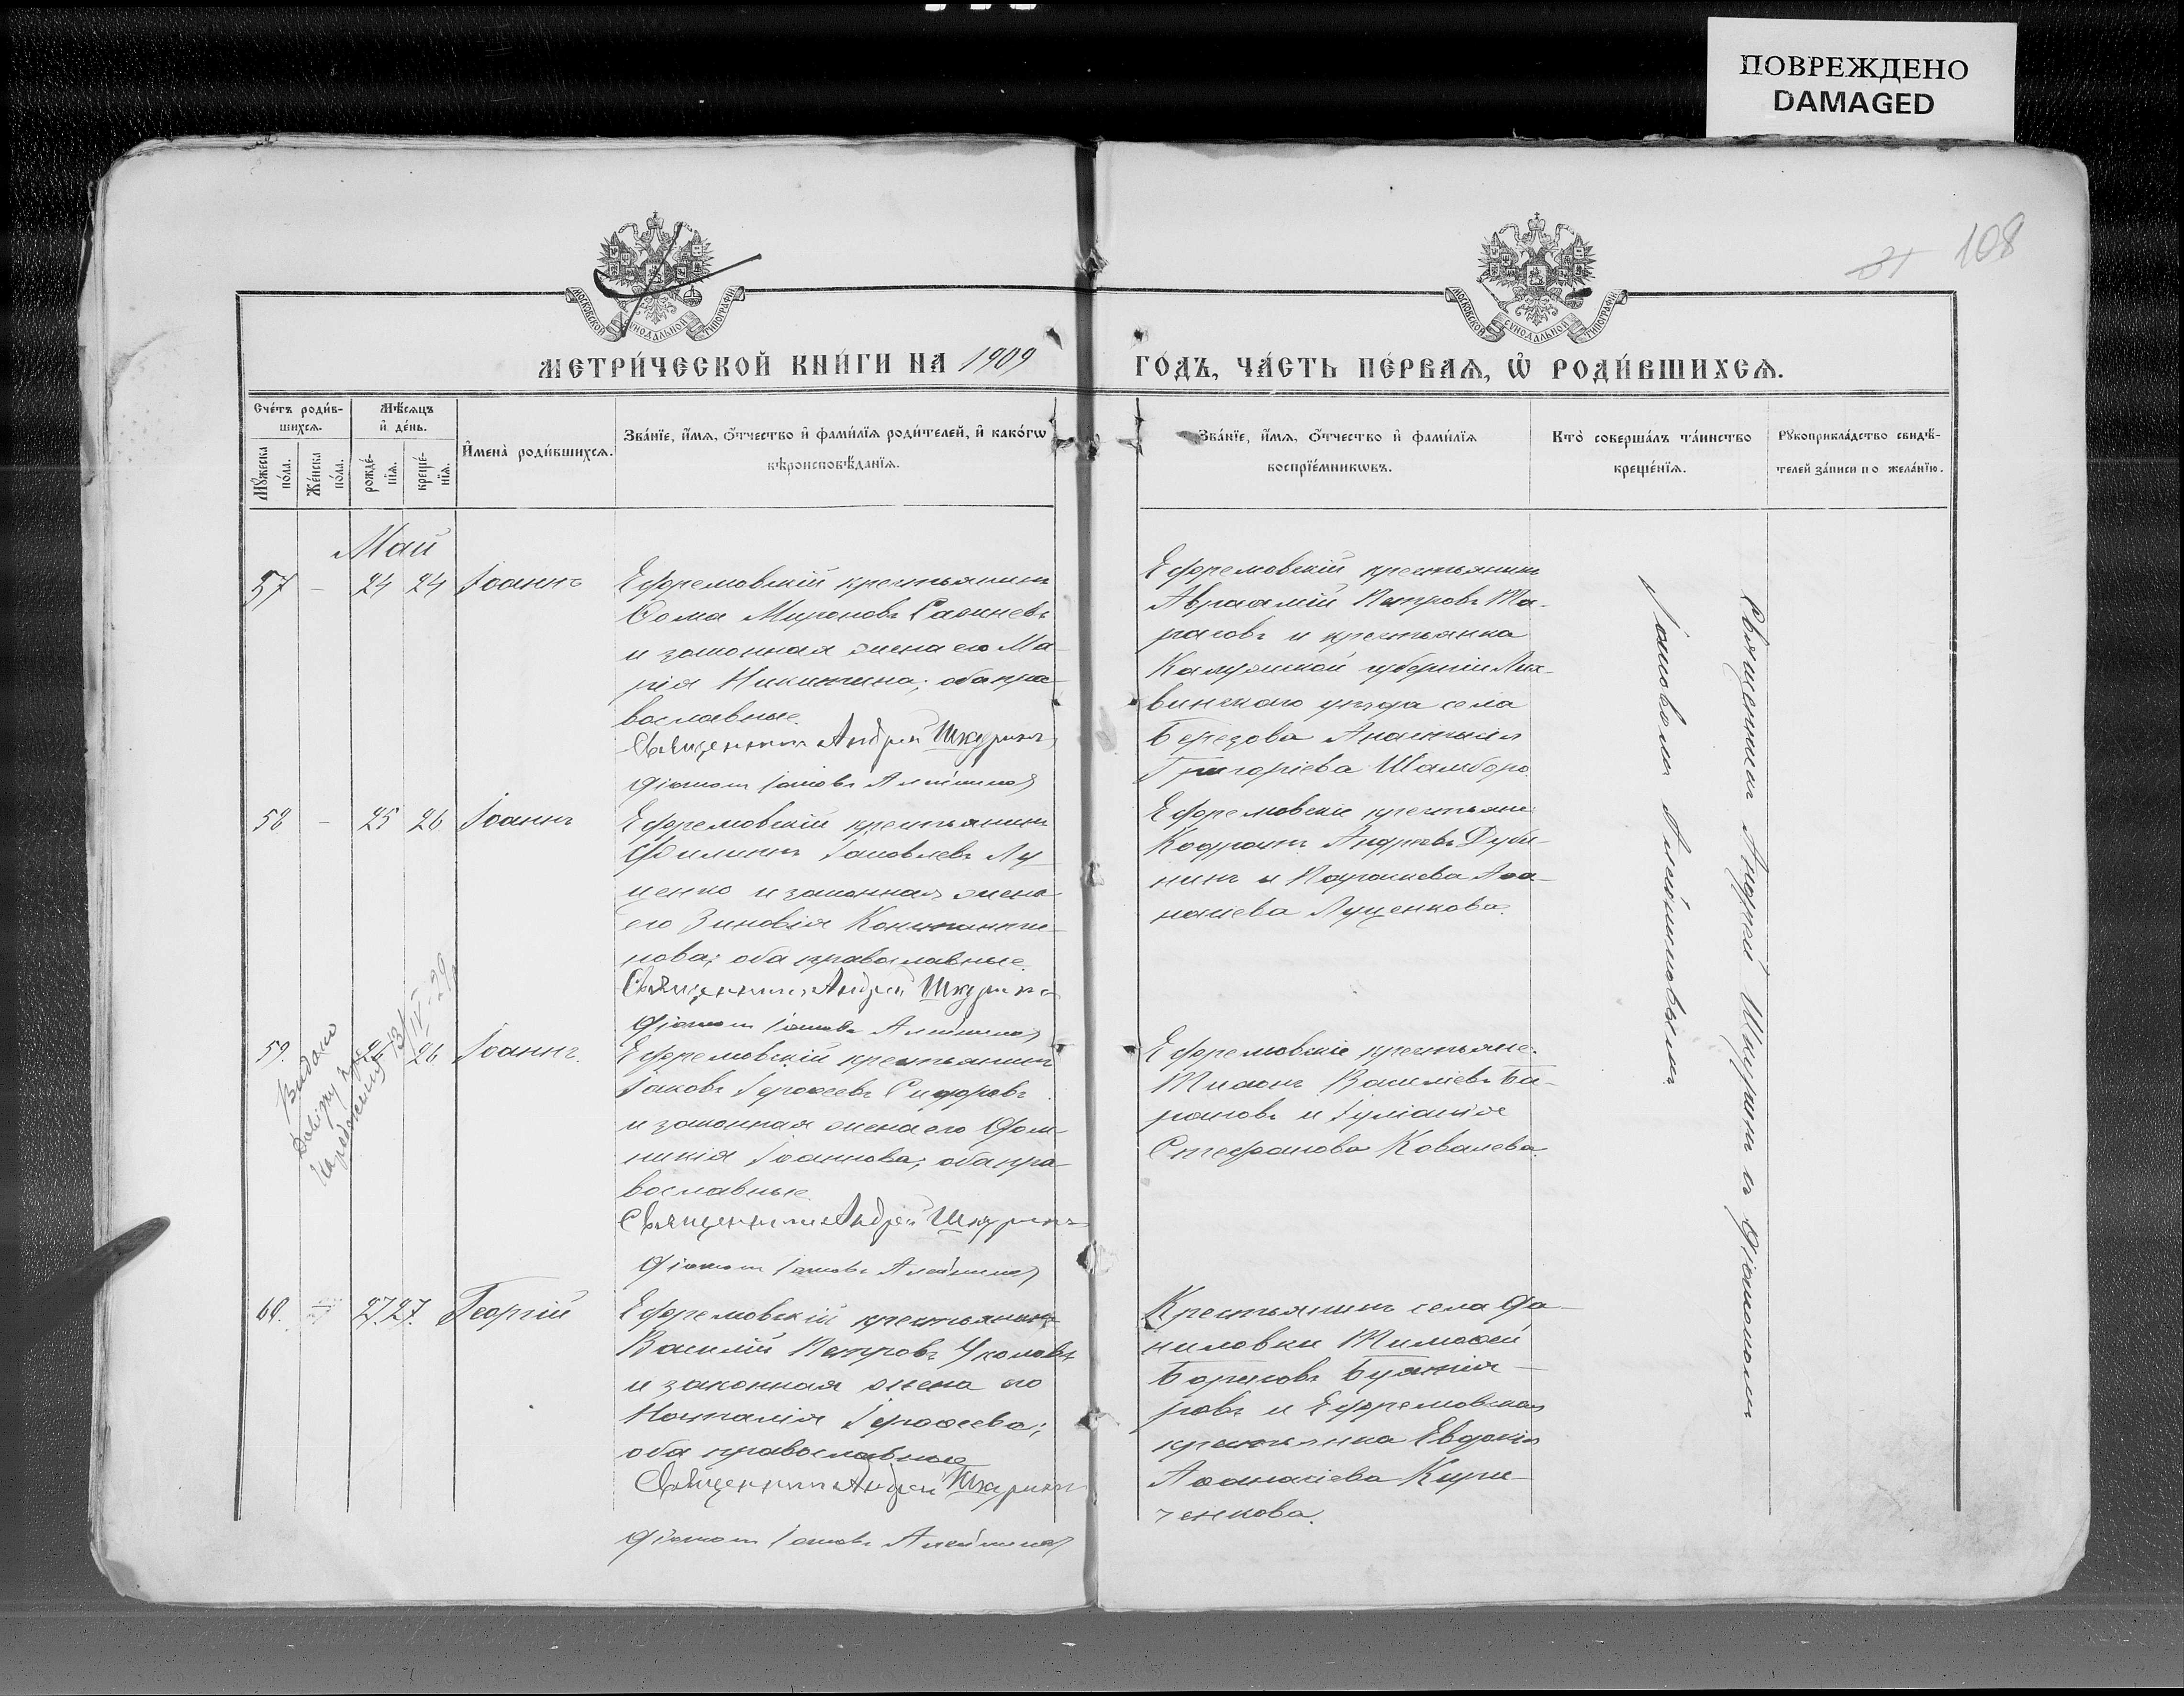 ПОВРЕЖДЕНО
DAMAGED
108
31
МОСКОВСКОЙ СѴНОДАЛЬНОЙ ТИПОГРАФІИ
МОСКОВСКОЙ СѴНОДАЛЬНОЙ ТИПОГРАФІИ
МЕТРИ́ЧЕСКОЙ КНИ́ГИ НА 1909
ГО́ДЪ, ЧА́СТЬ ПЕ́РВАѦ, Ѽ РОДИ́ВШИХСѦ.
Сче́тъ роди́в-
шихсѧ.
Мꙋ́жеска
по́ла.
Же́нска
по́ла.
Мѣ́сѧцъ
и҆ де́нь.
рожде́-
нїѧ.
креще́-
нїѧ.
И҆мена̀ роди́вшихсѧ.
Зва́нїе, и҆́мѧ, ѻ҆́тчество и҆ фами́лїѧ роди́телей, и҆ како́гѡ
вѣроисповѣ́данїѧ.
Зва́нїе, и҆́мѧ, ѻ҆́тчество и҆ фами́лїѧ
воспрїе́мникѡвъ.
Кто̀ соверша́лъ та́инство
креще́нїѧ.
Рꙋкоприкла́дство свидѣ́-
телей за́писи по жела́нїю.
Май
57 - 24 24 Іоаннъ
Ефремовскій крестьянинъ
Ѳома Мироновъ Савиневъ
и законная жена его Ма-
рія Никитина; оба пра-
вославные.
Священникъ Андрей Шкуринъ
Діаконъ Іаковъ Алейниковъ
Ефремовскій крестьянинъ
Авраамій Петровъ Та-
расовъ и крестьянка
Калужской губерніи Лих-
винскаго уѣзда села
Березова Анастасія
Григоріева Шамборо
58 - 25 26 Іоаннъ
Ефремовскій крестьянинъ
Филиппъ Іаковлевъ Лу-
ценко и законная жена
его Зиновія Константи-
нова; оба православные.
Священникъ Андрей Шкуринъ
Діаконъ Іаковъ Алейниковъ
Ефремовскіе крестьяне:
Кодратъ Андреевъ Дуби-
нинъ и Параскева Аѳа-
насіева Луценкова.
59. 25 26 Іоаннъ.
Видано
13/IV-29
Ефремовскій крестьянинъ
Іаковъ Іероѳеевъ Сидоровъ
и законная жена его Дом-
никія Іоаннова; оба пра-
вославные.
Священникъ Андрей Шкуринъ
Діаконъ Іаковъ Алейниковъ
Ефремовскіе крестьяне:
Тихонъ Василіевъ Ба-
рановъ и Іуліанія
Стефанова Ковалева.
60. 27. 27. Георгій
Ефремовскій крестьянинъ
Василій Петровъ Уколовъ
и законная жена его
Наталія Іероѳеева;
оба православные
Священникъ Андрей Шкуринъ
Діаконъ Іаковъ Алейниковъ
Крестьянинъ села Да-
ниловки Тимоѳей
Борисовъ Буяккія-
ровъ и Ефремовская
крестьянка Евдокія
Аѳанасіева Кири-
ченкова.
Священникъ Андрей Шкуринъ съ Діакономъ
Іаковомъ Алейниковымъ